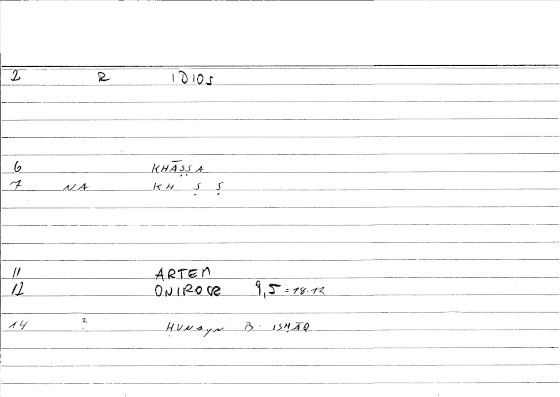 2 R IDIOS
6 KHĀṢṢA
7 NA KH Ṣ Ṣ
11 ARTEM
12 ONIROCR 9,5 = 18.12
14 2 ḤUNAYN B. ISḤĀQ